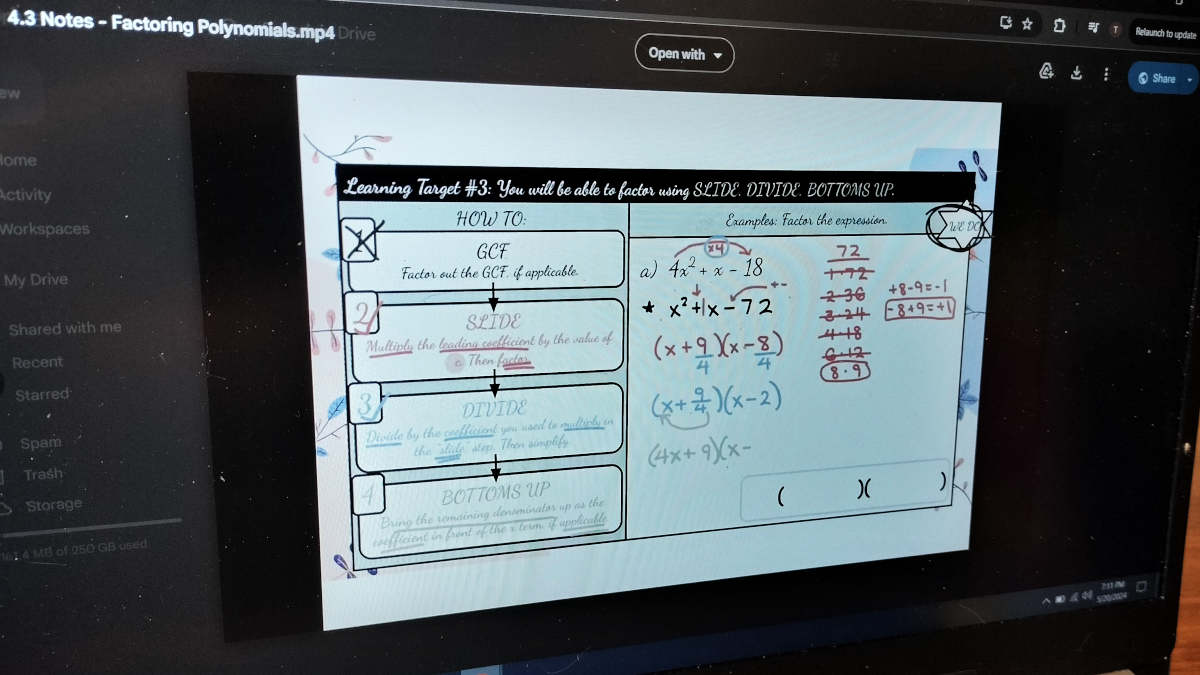 4.3 Notes - Factoring Polynomials.mp4 Drive
Open with
Relaunch to update
Share
ew
Home
Activity
Workspaces
My Drive
Shared with me
Recent
Starred
Spam
Trash
Storage
MB of 250 GB used
Learning Target #3: You will be able to factor using SLIDE, DIVIDE, BOTTOMS UP.
HOW TO:
1
GCF
Factor out the GCF, if applicable.
2
SLIDE
Multiply the leading coefficient by the value of
c. Then factor.
3
DIVIDE
Divide by the coefficient you used to multiply in
the "slide" step. Then simplify.
4
BOTTOMS UP
Bring the remaining denominator up as the
coefficient in front of the x term, if applicable.
Examples: Factor the expression.
WE DO
x4
a) 4x² + x - 18
+ -
★ x² + 1x - 72
(x + 9/4)(x - 8/4)
(x + 9/4)(x - 2)
(4x + 9)(x -
( )( )
72
1·72
2·36
3·24
4·18
6·12
8·9
+8-9=-1
-8+9=+1
7:11 PM
5/20/2024